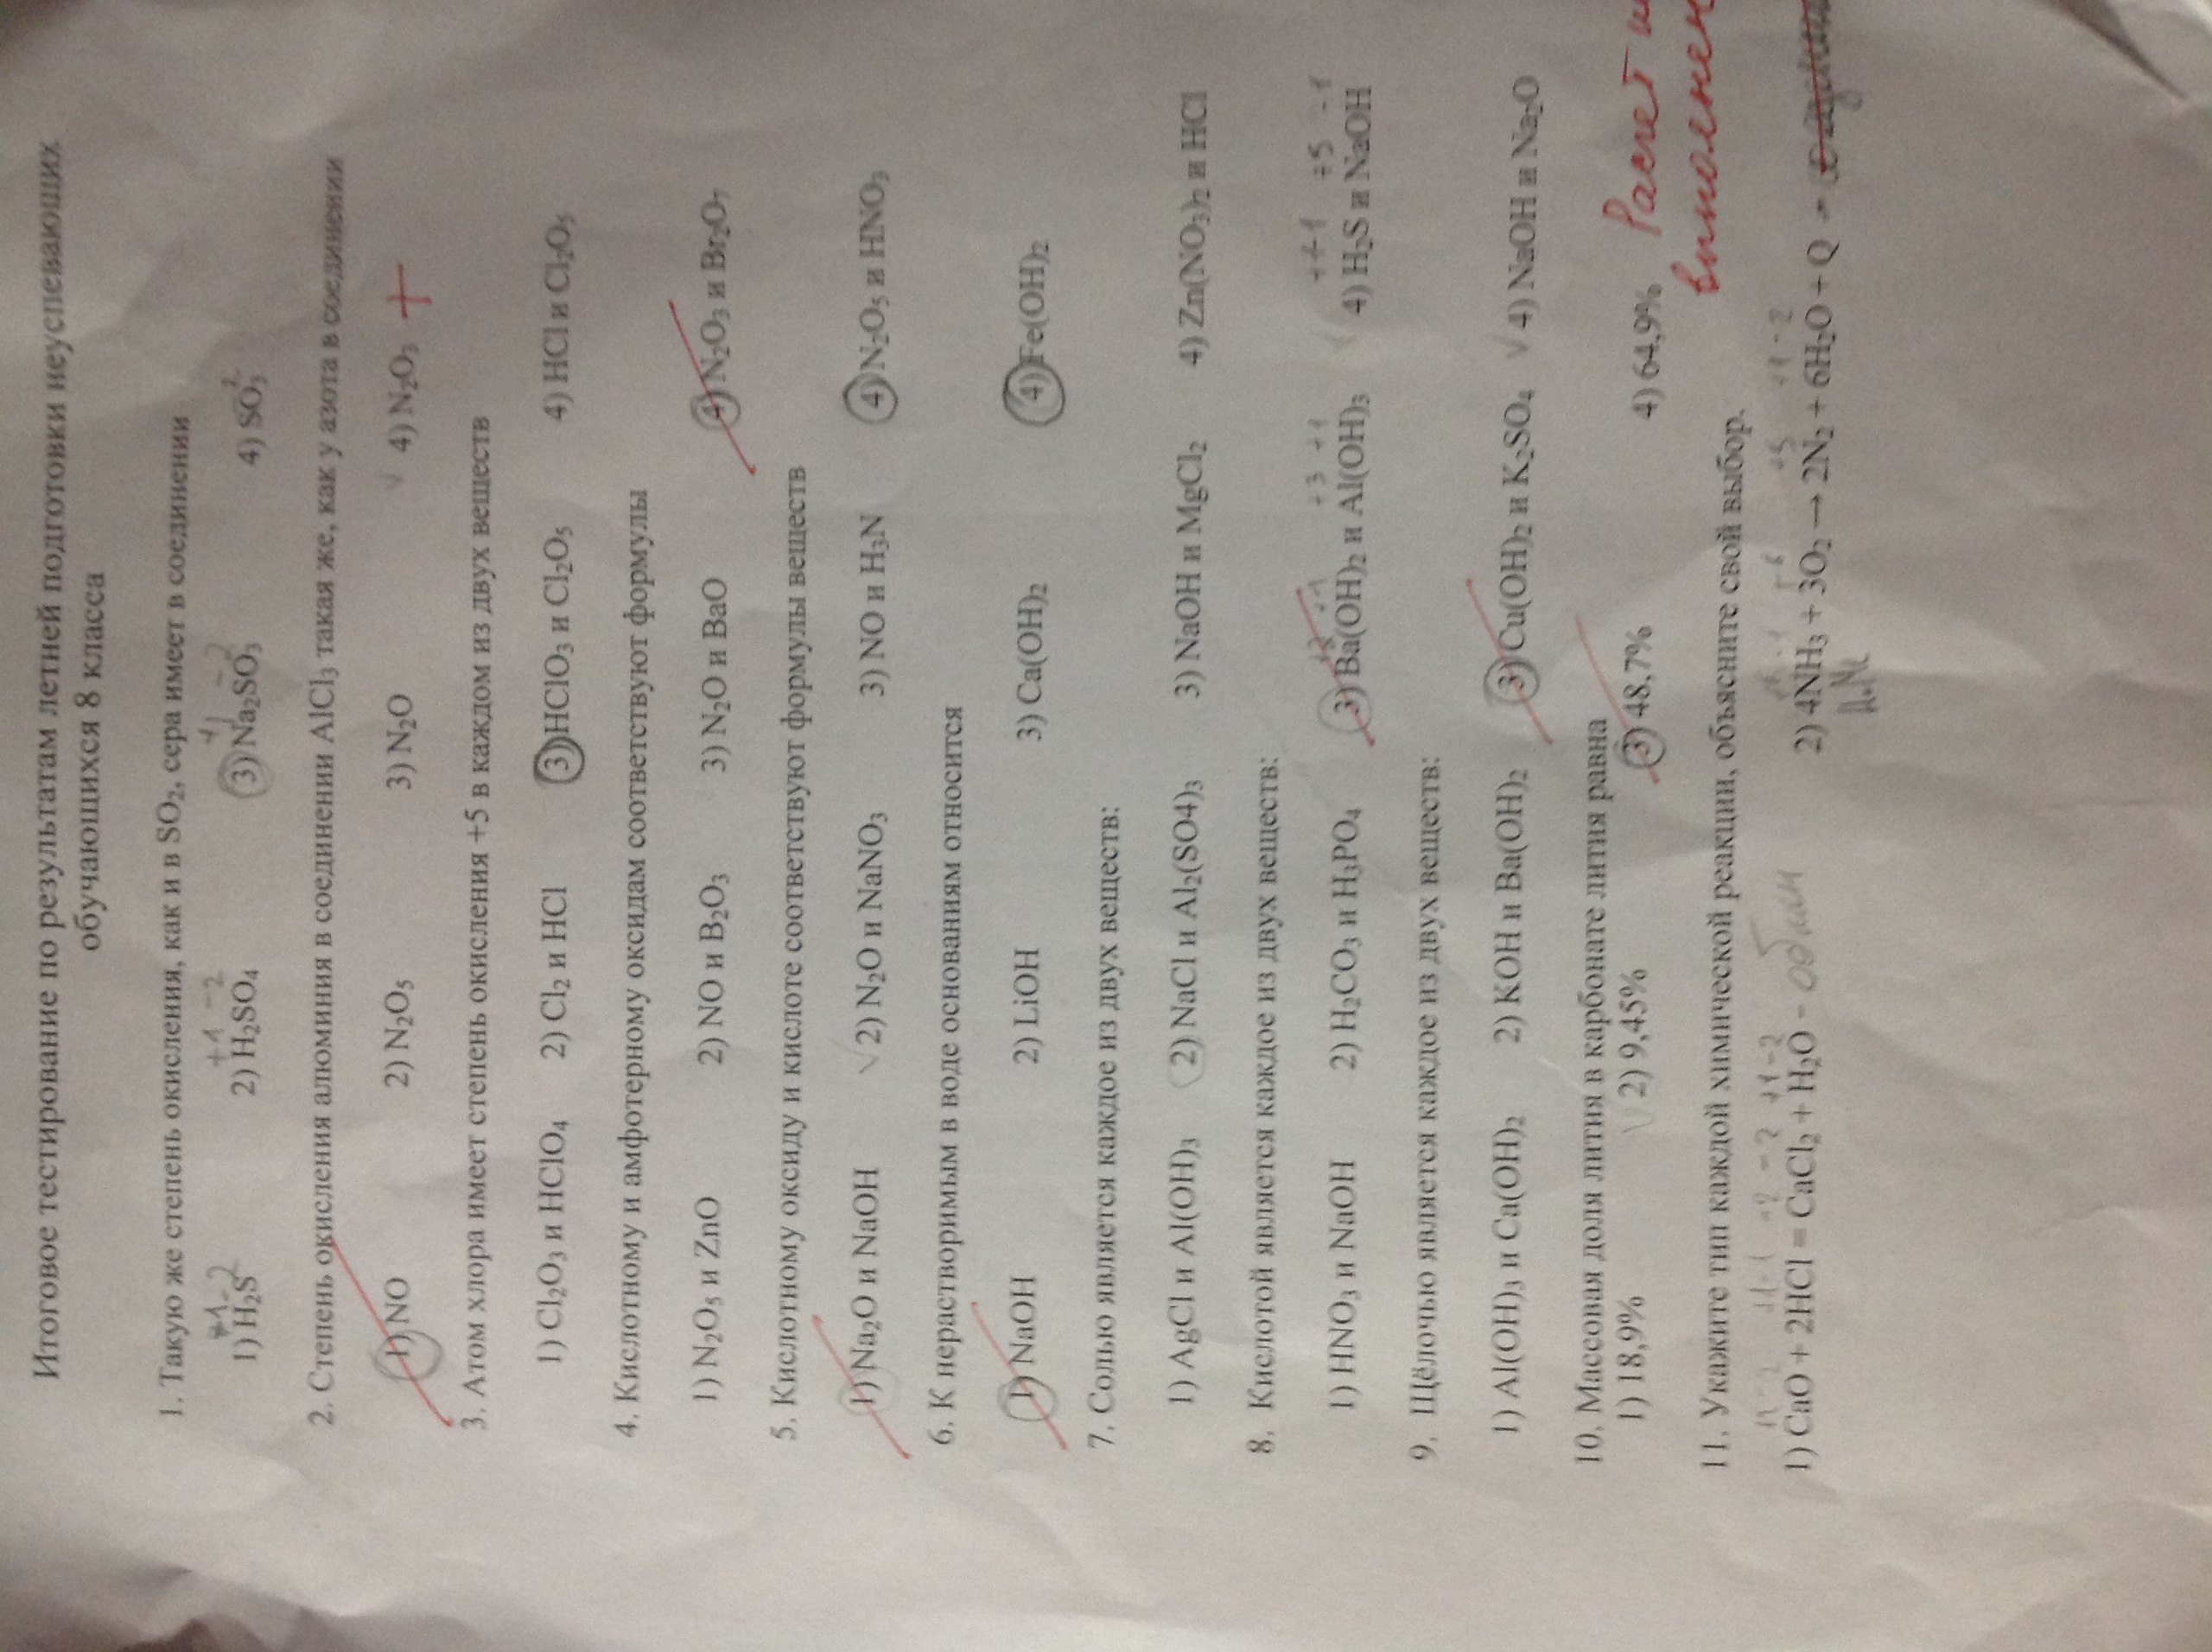 Итоговое тестирование по результатам летней подготовки неуспевающих
обучающихся 8 класса
1. Такую же степень окисления, как и в SO₂, сера имеет в соединении
+1 -2 +1 -2 +1 -2 2
1) H₂S 2) H₂SO₄ 3) Na₂SO₃ 4) SO₃
2. Степень окисления алюминия в соединении AlCl₃ такая же, как у азота в соединении
1) NO 2) N₂O₅ 3) N₂O √ 4) N₂O₃ +
3. Атом хлора имеет степень окисления +5 в каждом из двух веществ
1) Cl₂O₃ и HClO₄ 2) Cl₂ и HCl 3) HClO₃ и Cl₂O₅ 4) HCl и Cl₂O₅
4. Кислотному и амфотерному оксидам соответствуют формулы
1) N₂O₅ и ZnO 2) NO и B₂O₃ 3) N₂O и BaO 4) N₂O₃ и Br₂O₇
5. Кислотному оксиду и кислоте соответствуют формулы веществ
1) Na₂O и NaOH √ 2) N₂O и NaNO₃ 3) NO и H₃N 4) N₂O₅ и HNO₃
6. К нерастворимым в воде основаниям относится
1) NaOH 2) LiOH 3) Ca(OH)₂ 4) Fe(OH)₂
7. Солью является каждое из двух веществ:
1) AgCl и Al(OH)₃ 2) NaCl и Al₂(SO4)₃ 3) NaOH и MgCl₂ 4) Zn(NO₃)₂ и HCl
8. Кислотой является каждое из двух веществ:
+2 +1 +3 +1 ++1 +5 -1
1) HNO₃ и NaOH 2) H₂CO₃ и H₃PO₄ 3) Ba(OH)₂ и Al(OH)₃ 4) H₂S и NaOH
9. Щёлочью является каждое из двух веществ:
1) Al(OH)₃ и Ca(OH)₂ 2) KOH и Ba(OH)₂ 3) Cu(OH)₂ и K₂SO₄ √ 4) NaOH и Na₂O
10. Массовая доля лития в карбонате лития равна
1) 18,9% √ 2) 9,45% 3) 48,7% 4) 64,9% Расчет
выполнен
11. Укажите тип каждой химической реакции, объясните свой выбор.
1) CaO + 2HCl = CaCl₂ + H₂O - обмен 2) 4NH₃ + 3O₂ → 2N₂ + 6H₂O + Q